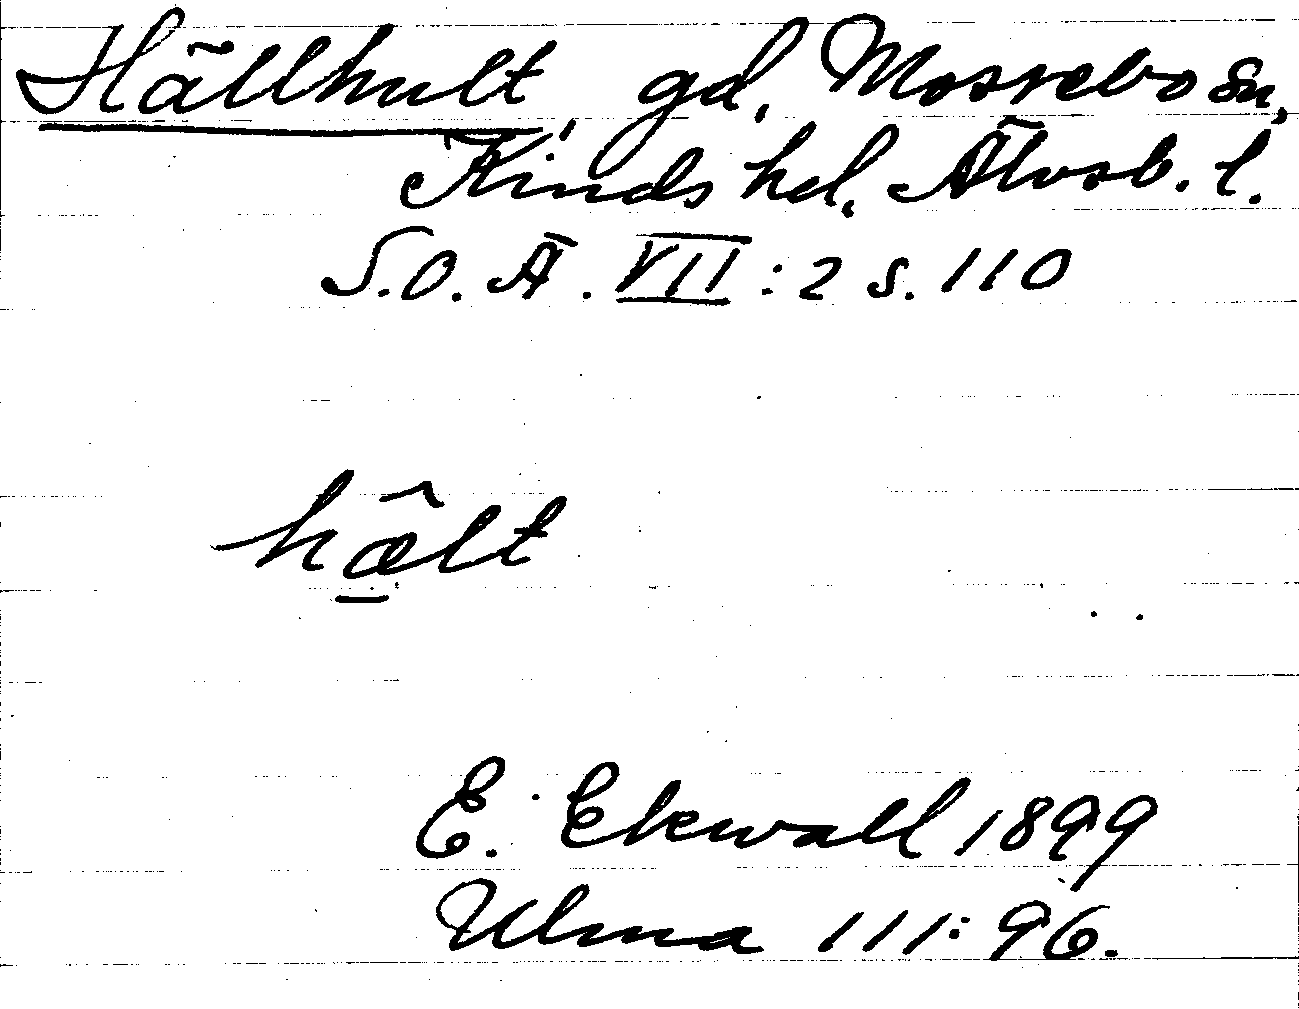 Hällhult, gd, Mossebo sn,
Kinds hd. Älvsb. l.
S.O.Ä. VII : 2 s. 110
hæ̂lt
E. Ekwall 1899
Ulma 111: 96.